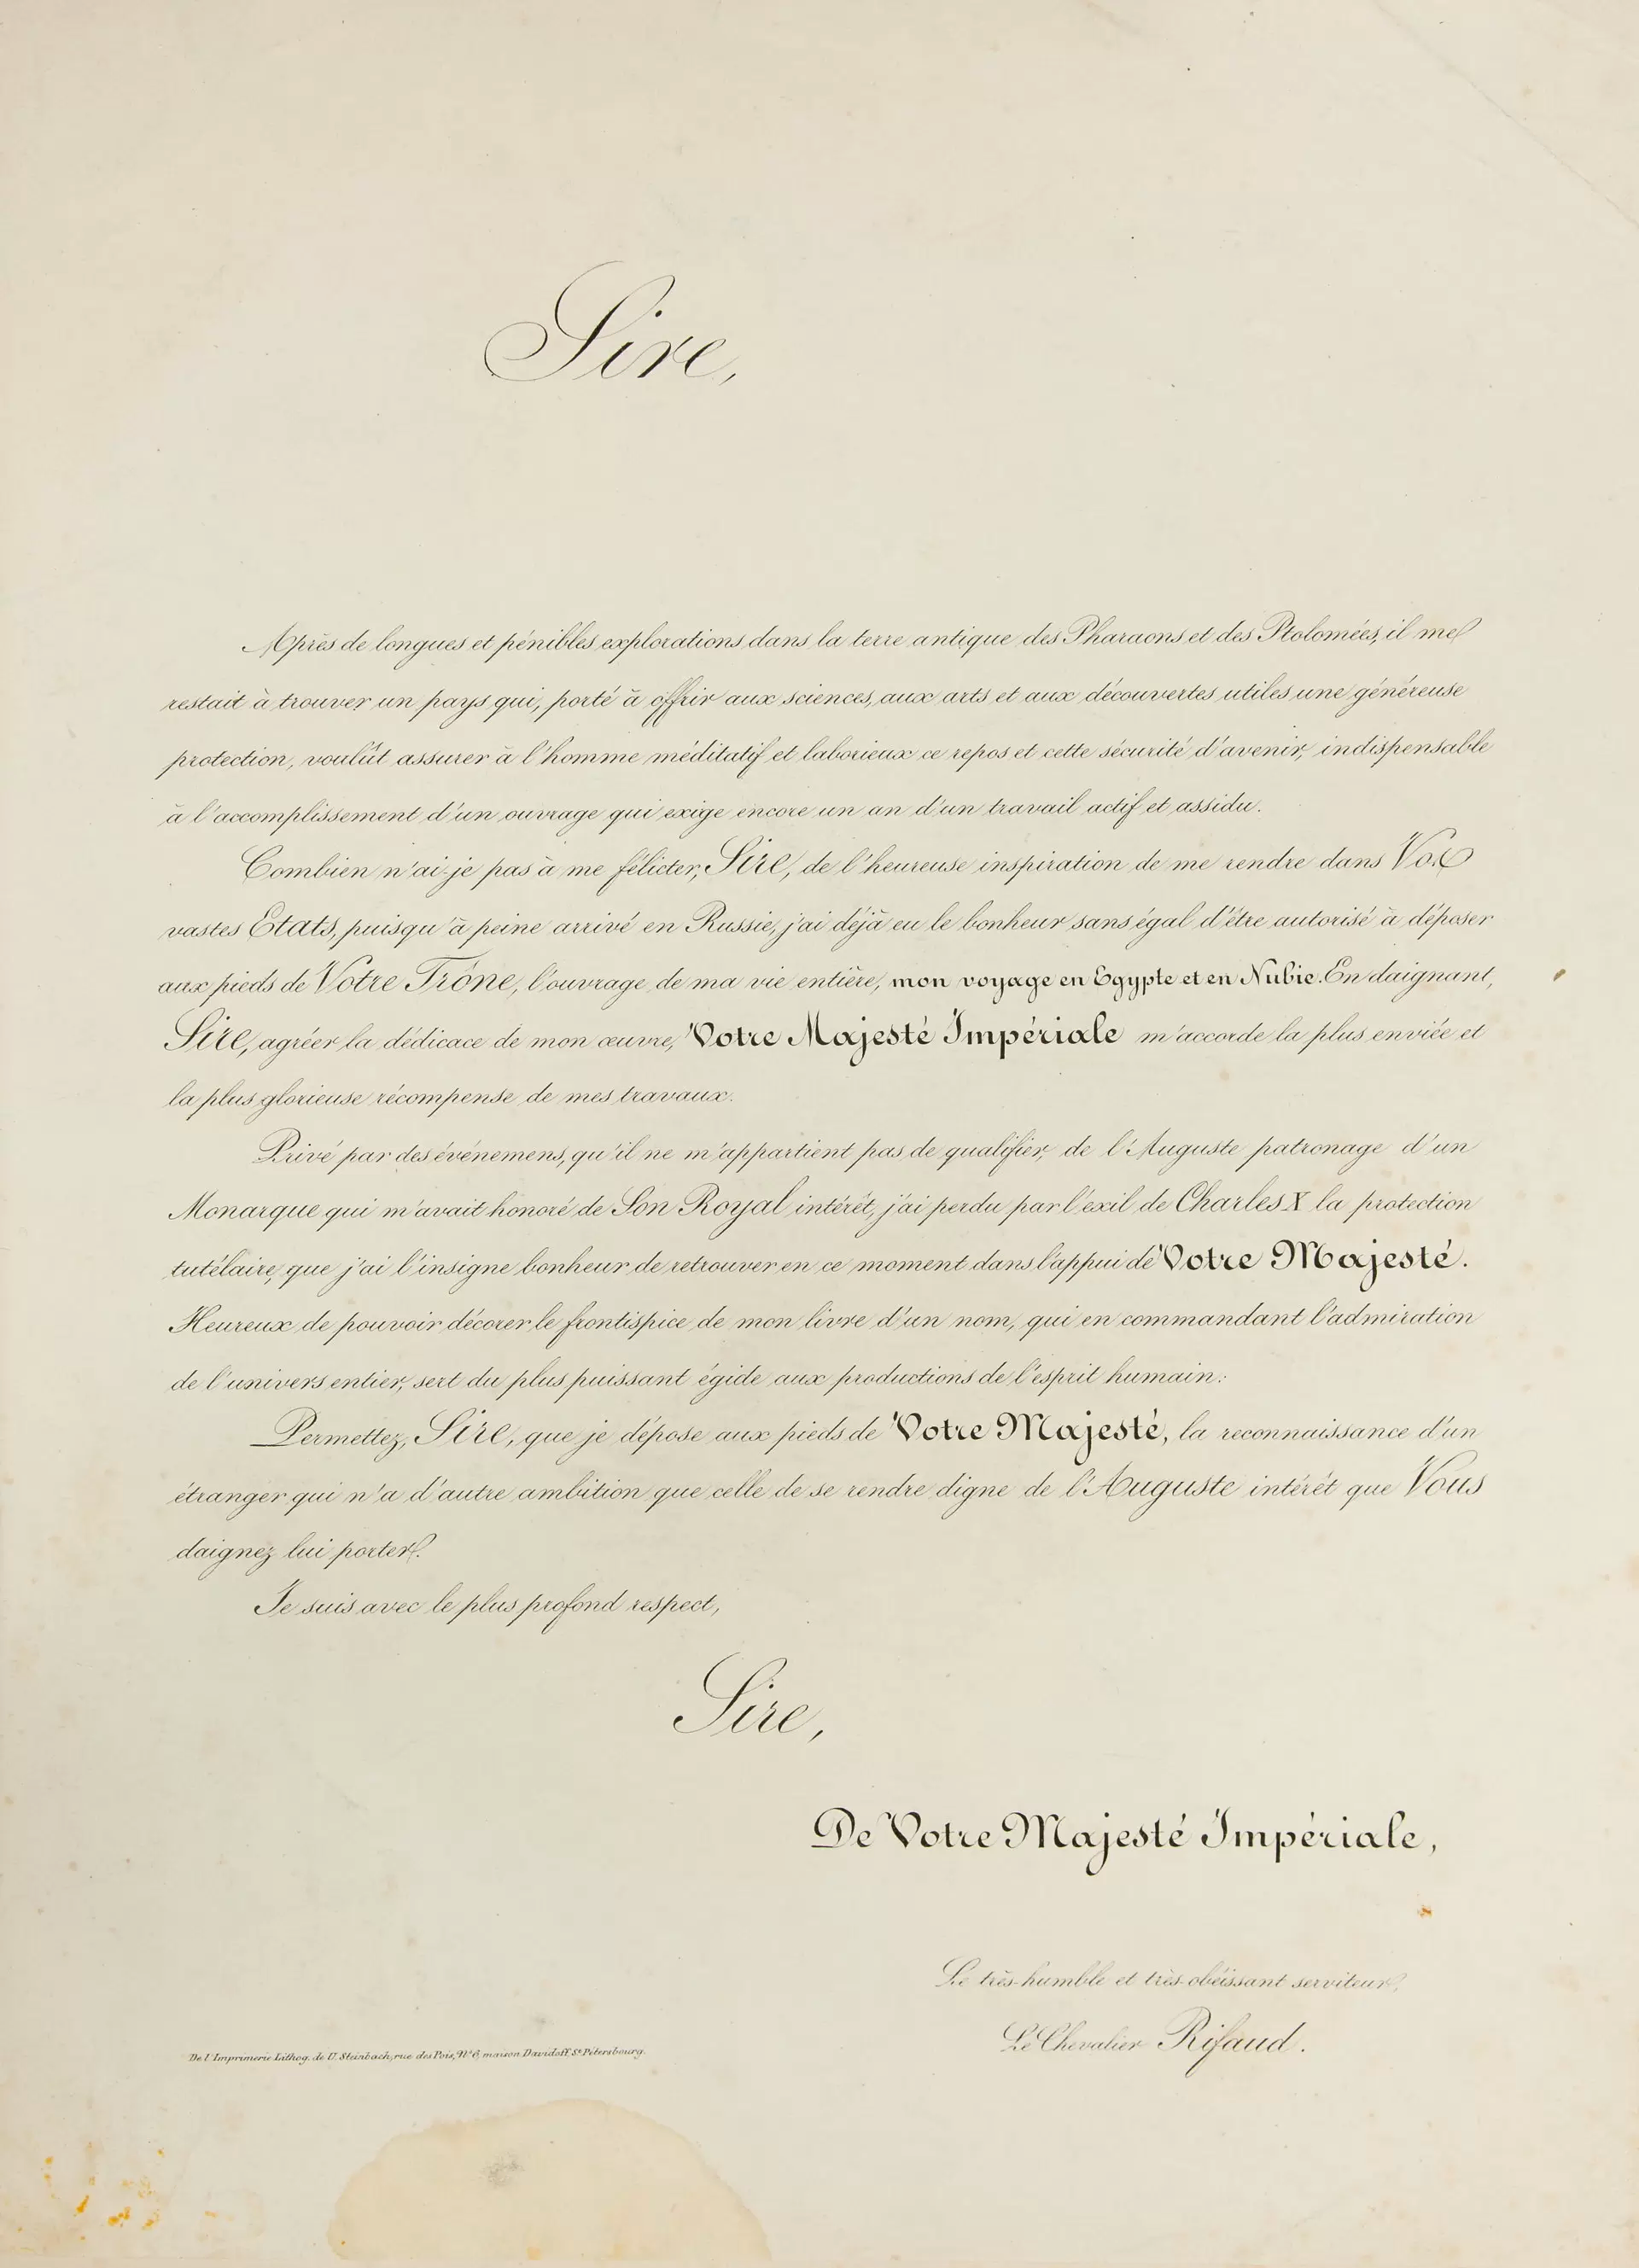 Sire,
Après de longues et pénibles explorations dans la terre antique des Pharaons et des Ptolomées, il me
restait à trouver un pays qui, porté à offrir aux sciences, aux arts et aux découvertes utiles une généreuse
protection, voulût assurer à l'homme méditatif et laborieux ce repos et cette sécurité d'avenir, indispensable
à l'accomplissement d'un ouvrage qui exige encore un an d'un travail actif et assidu.
Combien n'ai-je pas à me félicter, Sire, de l'heureuse inspiration de me rendre dans Vos
vastes Etats, puisqu'à peine arrivé en Russie, j'ai déjà eu le bonheur sans égal d'être autorisé à déposer
aux pieds de Votre Trône, l'ouvrage de ma vie entière, mon voyage en Egypte et en Nubie. En daignant,
Sire, agréer la dédicace de mon œuvre, Votre Majesté Impériale m'accorde la plus enviée et
la plus glorieuse récompense de mes travaux.
Privé par des événemens, qu'il ne m'appartient pas de qualifier, de l'Auguste patronage d'un
Monarque qui m'avait honoré de Son Royal intérêt, j'ai perdu par l'exil de Charles X la protection
tutélaire, que j'ai l'insigne bonheur de retrouver en ce moment dans l'appui de Votre Majesté.
Heureux de pouvoir décorer le frontispice de mon livre d'un nom, qui en commandant l'admiration
de l'univers entier, sert du plus puissant égide aux productions de l'esprit humain:
Permettez, Sire, que je dépose aux pieds de Votre Majesté, la reconnaissance d'un
étranger qui n'a d'autre ambition que celle de se rendre digne de l'Auguste intérêt que Vous
daignez lui porter.
Je suis avec le plus profond respect,
Sire,
De Votre Majesté Impériale,
Le très-humble et très-obéissant serviteur,
Le Chevalier Rifaud.
De l'Imprimerie Lithog. de U. Steinbach, rue des Pois, N° 6, maison Davidoff St Pétersbourg.